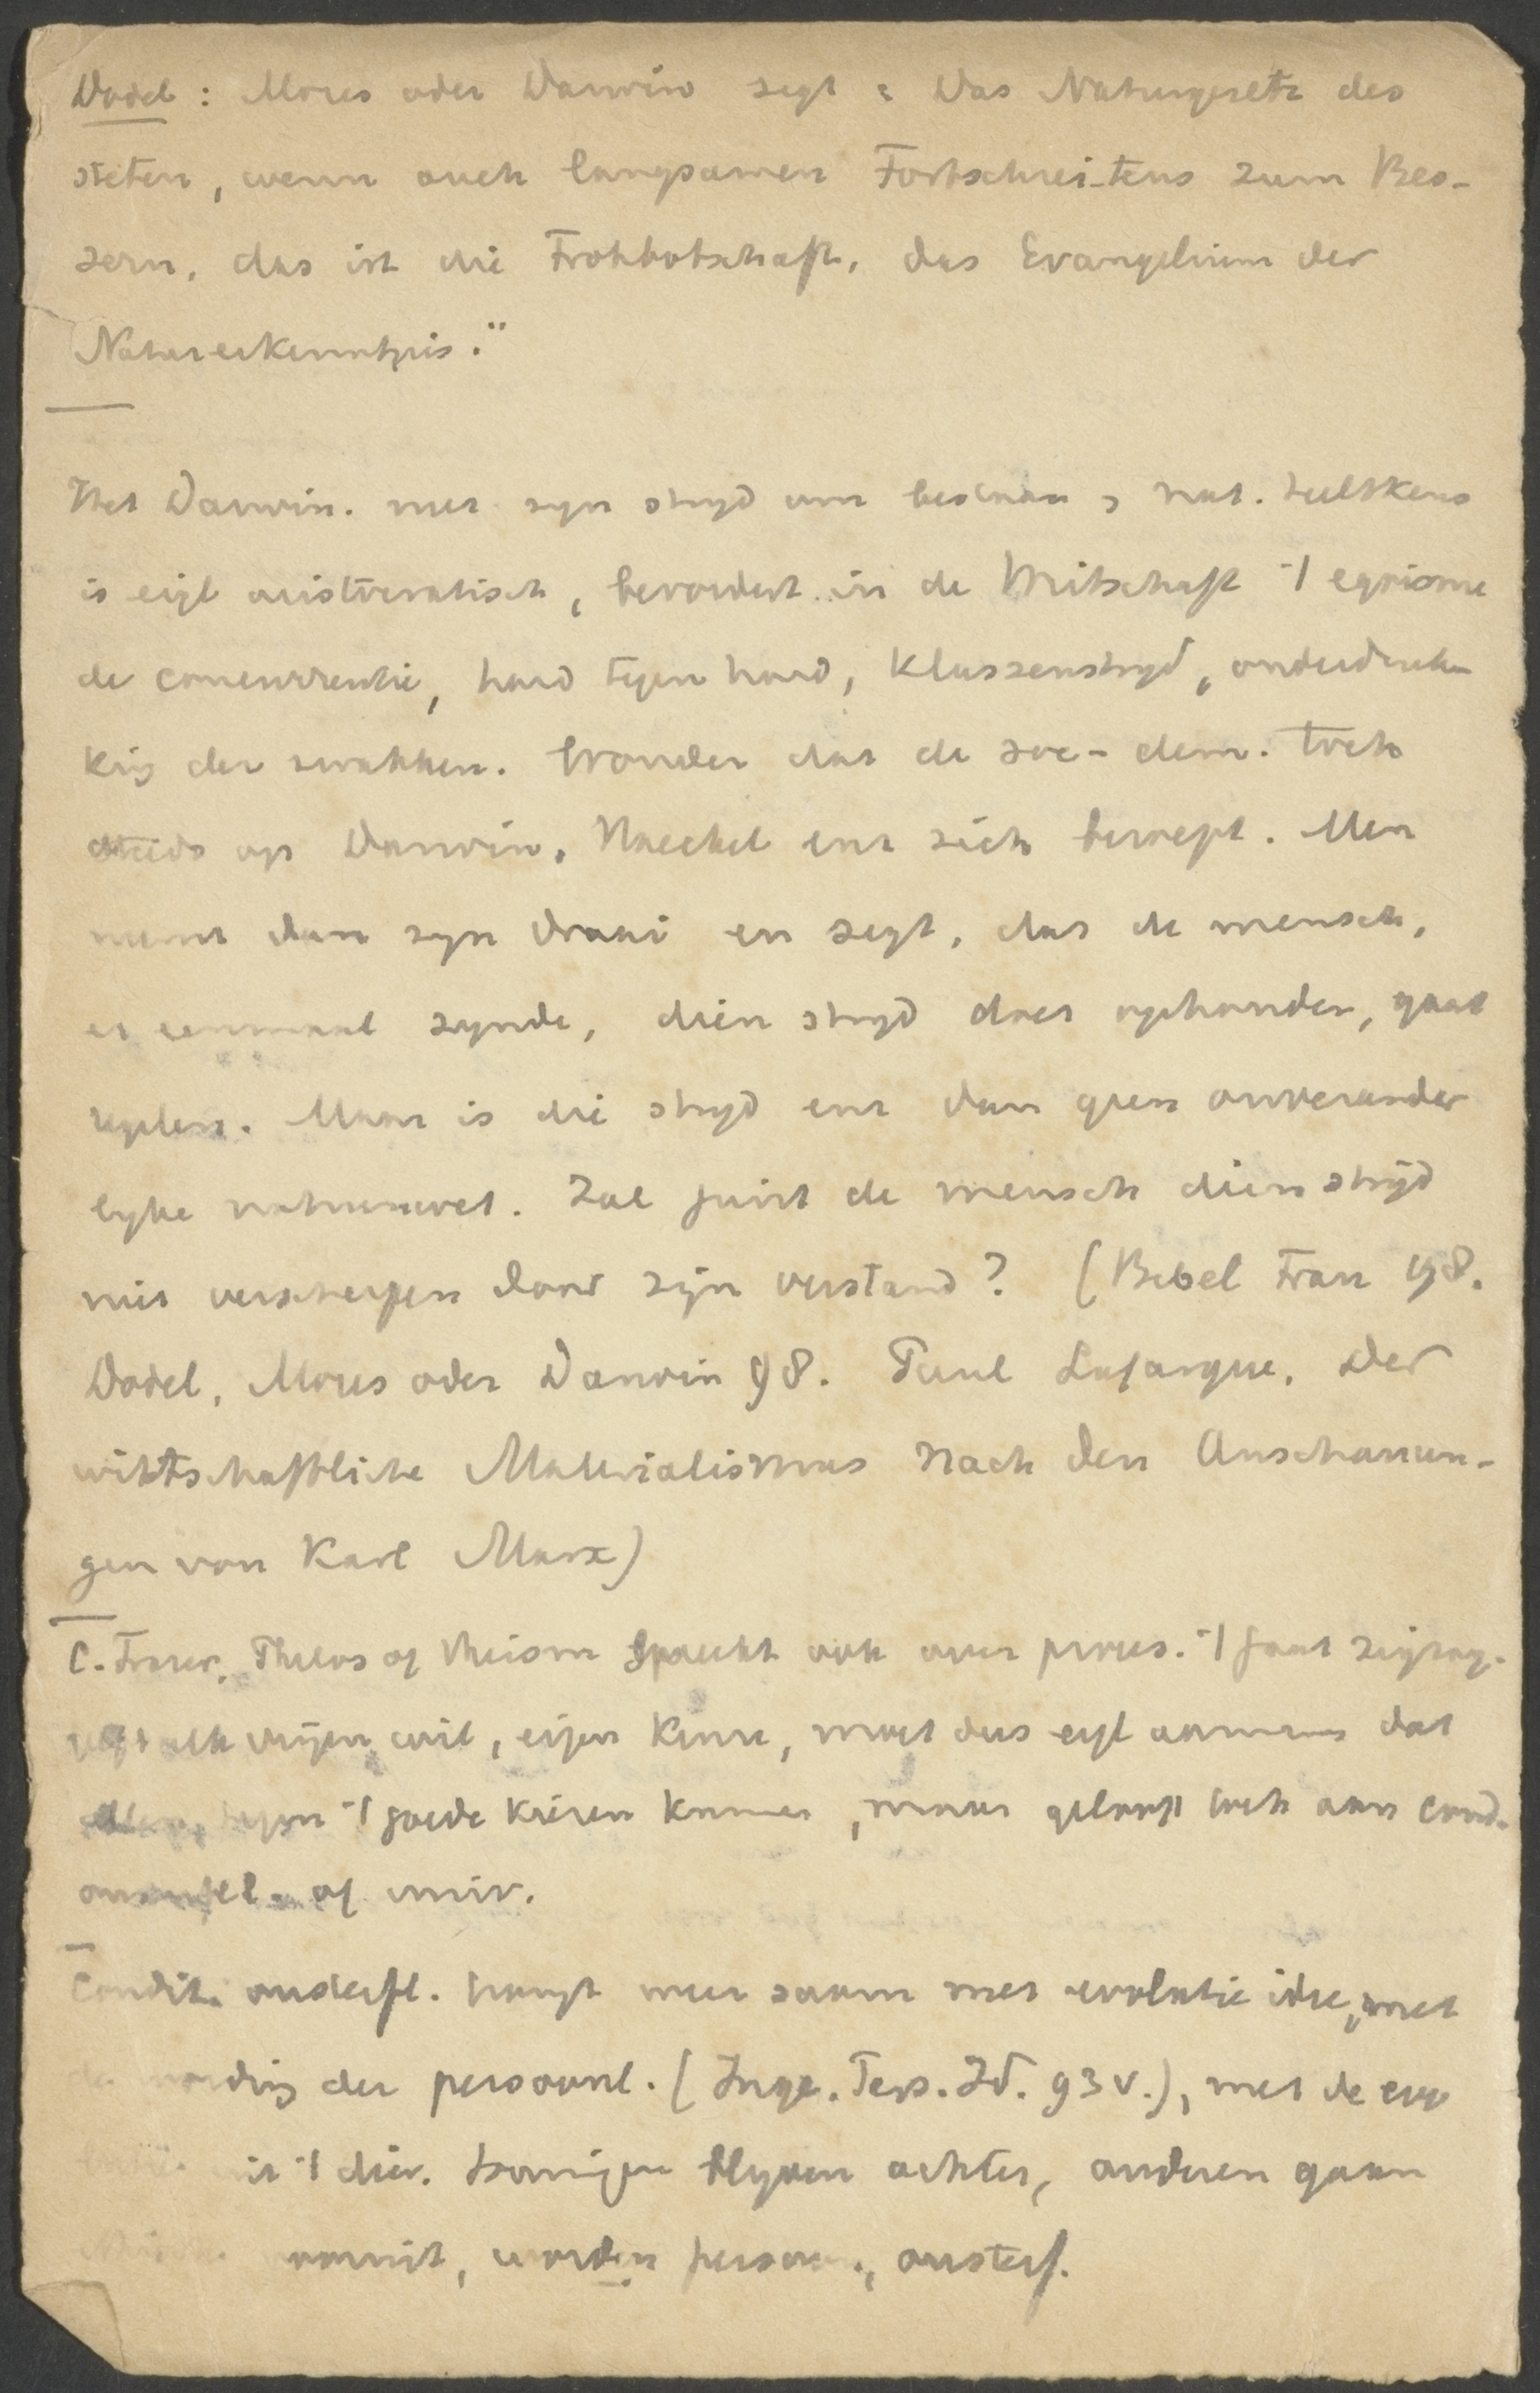 Dodel: Moses oder Darwin zegt: Das Naturgesetz des
steten, wenn auch langsamen Fortschreitens zum Bes-
sern, das ist die Frohbotschaft, das Evangelium der
Naturerkenntnis."
Het Darwin. met zyn stryd om bestaan, nat. teeltkeus
is eigl aristocratisch, bevordert in de Wirtschaft 't egoisme
de concurrentie, hard tegen hard, klassenstryd, onderdruk
king der zwakken. Wonder dat de soc-dem. toch
steeds op Darwin, Haeckel enz zich beroept. Men
neemt dan zyn draai en zegt, dat de mensch,
er eenmaal zynde, dien stryd doet ophouden, gaat
regelen. Maar is die stryd enz dan geen onverander
lyke natuurwet. Zal juist de mensch dien stryd
niet verscherpen door zijn verstand? (Bebel Frau 198.
Dodel, Moses oder Darwin 98. Paul Lafargue, Der
wirtschaftliche Materialismus nach den Anschauun-
gen von Karl Marx)
C. Fraser, Philos of Theism spreekt ook over proces. 't gaat zigzag.
elk vrijen wil, eigen keuze, moet dus eigl aannemen dat
allen tegen 't goede kiezen kunnen, maar gelooft toch aan cond.
onsterfel. of univ.
Condit. onsterfl. hangt meer saam met evolutie idee, met
de wording der persoonl. (Inge. Pers. Id. 93 v.), met de evo
uit 't dier. Sommigen blyven achter, anderen gaan
vooruit, worden persoon., onsterf.